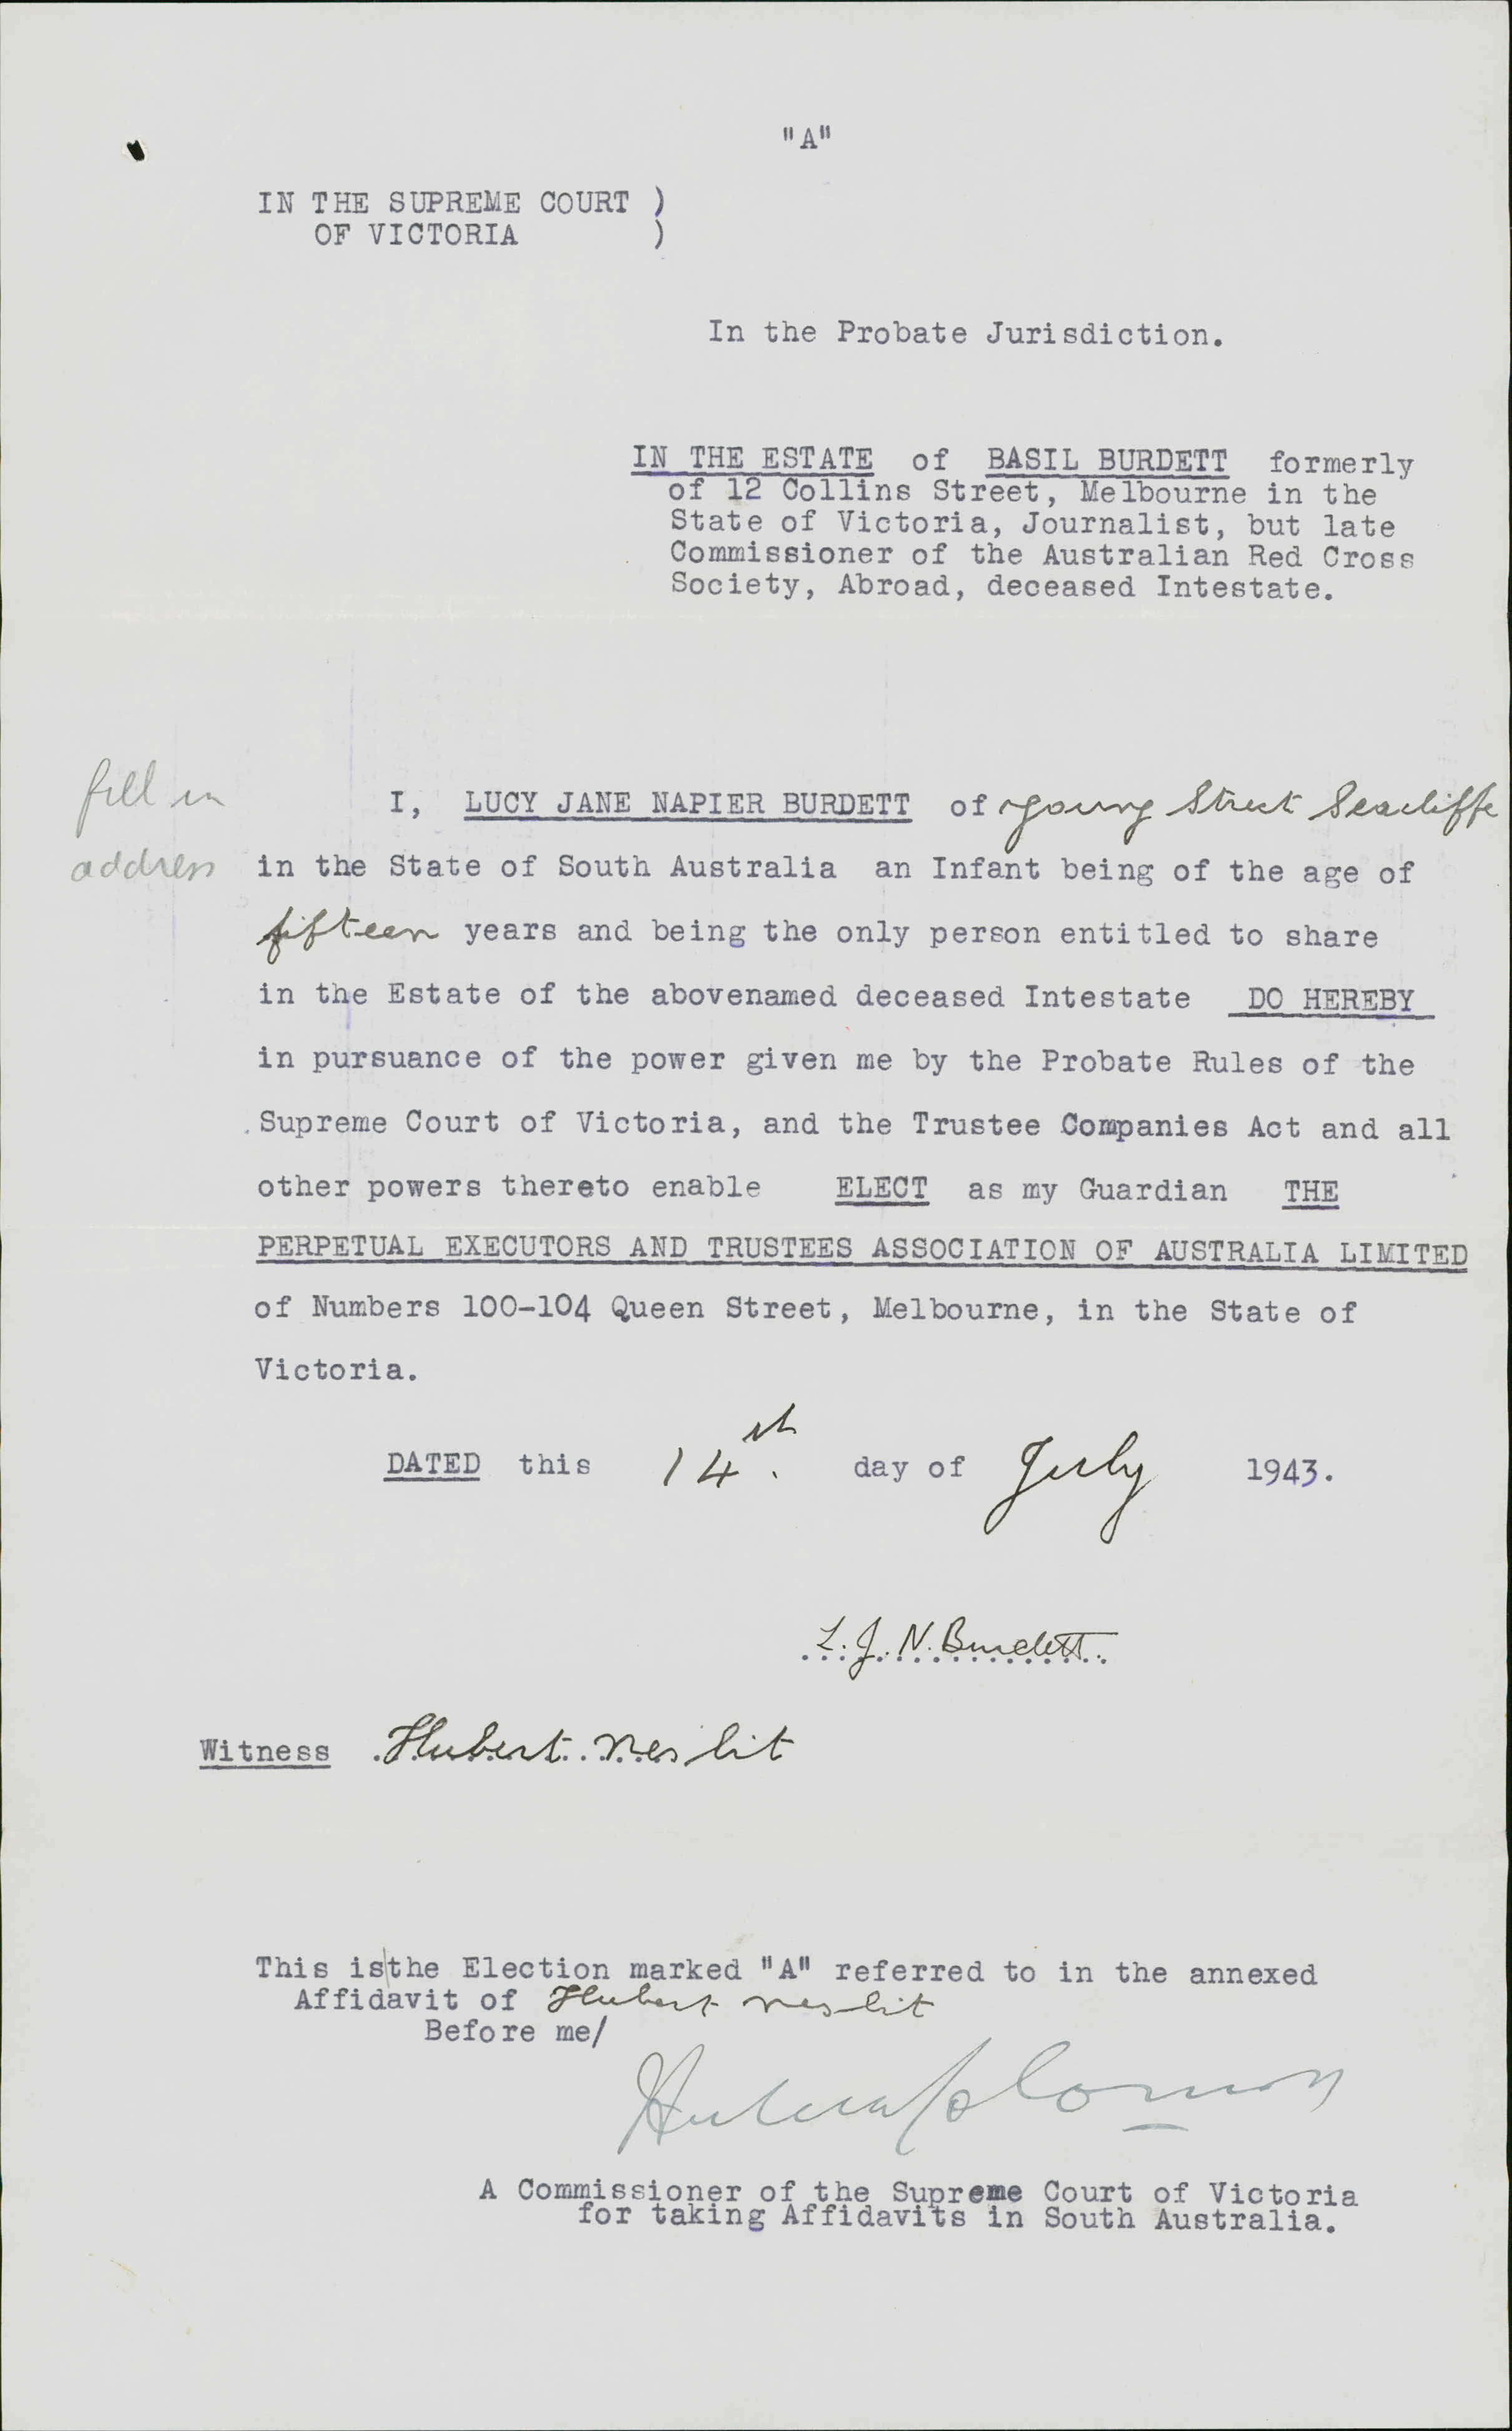 "A"
IN THE SUPREME COURT )
OF VICTORIA )
In the Probate Jurisdiction.
IN THE ESTATE of BASIL BURDETT formerly
of 12 Collins Street, Melbourne in the
State of Victoria, Journalist, but late
Commissioner of the Australian Red Cross
Society, Abroad, deceased Intestate.
fill in
address
I, LUCY JANE NAPIER BURDETT of Young Street Seacliffe
in the State of South Australia an Infant being of the age of
fifteen years and being the only person entitled to share
in the Estate of the abovenamed deceased Intestate DO HEREBY
in pursuance of the power given me by the Probate Rules of the
Supreme Court of Victoria, and the Trustee Companies Act and all
other powers thereto enable ELECT as my Guardian THE
PERPETUAL EXECUTORS AND TRUSTEES ASSOCIATION OF AUSTRALIA LIMITED
of Numbers 100-104 Queen Street, Melbourne, in the State of
Victoria.
DATED this 14th. day of July 1943.
L. J. N. Burdett
Witness Hubert Nesbit
This is|the Election marked "A" referred to in the annexed
Affidavit of Hubert Nesbit
Before me/
A Commissioner of the Supreme Court of Victoria
for taking Affidavits in South Australia.